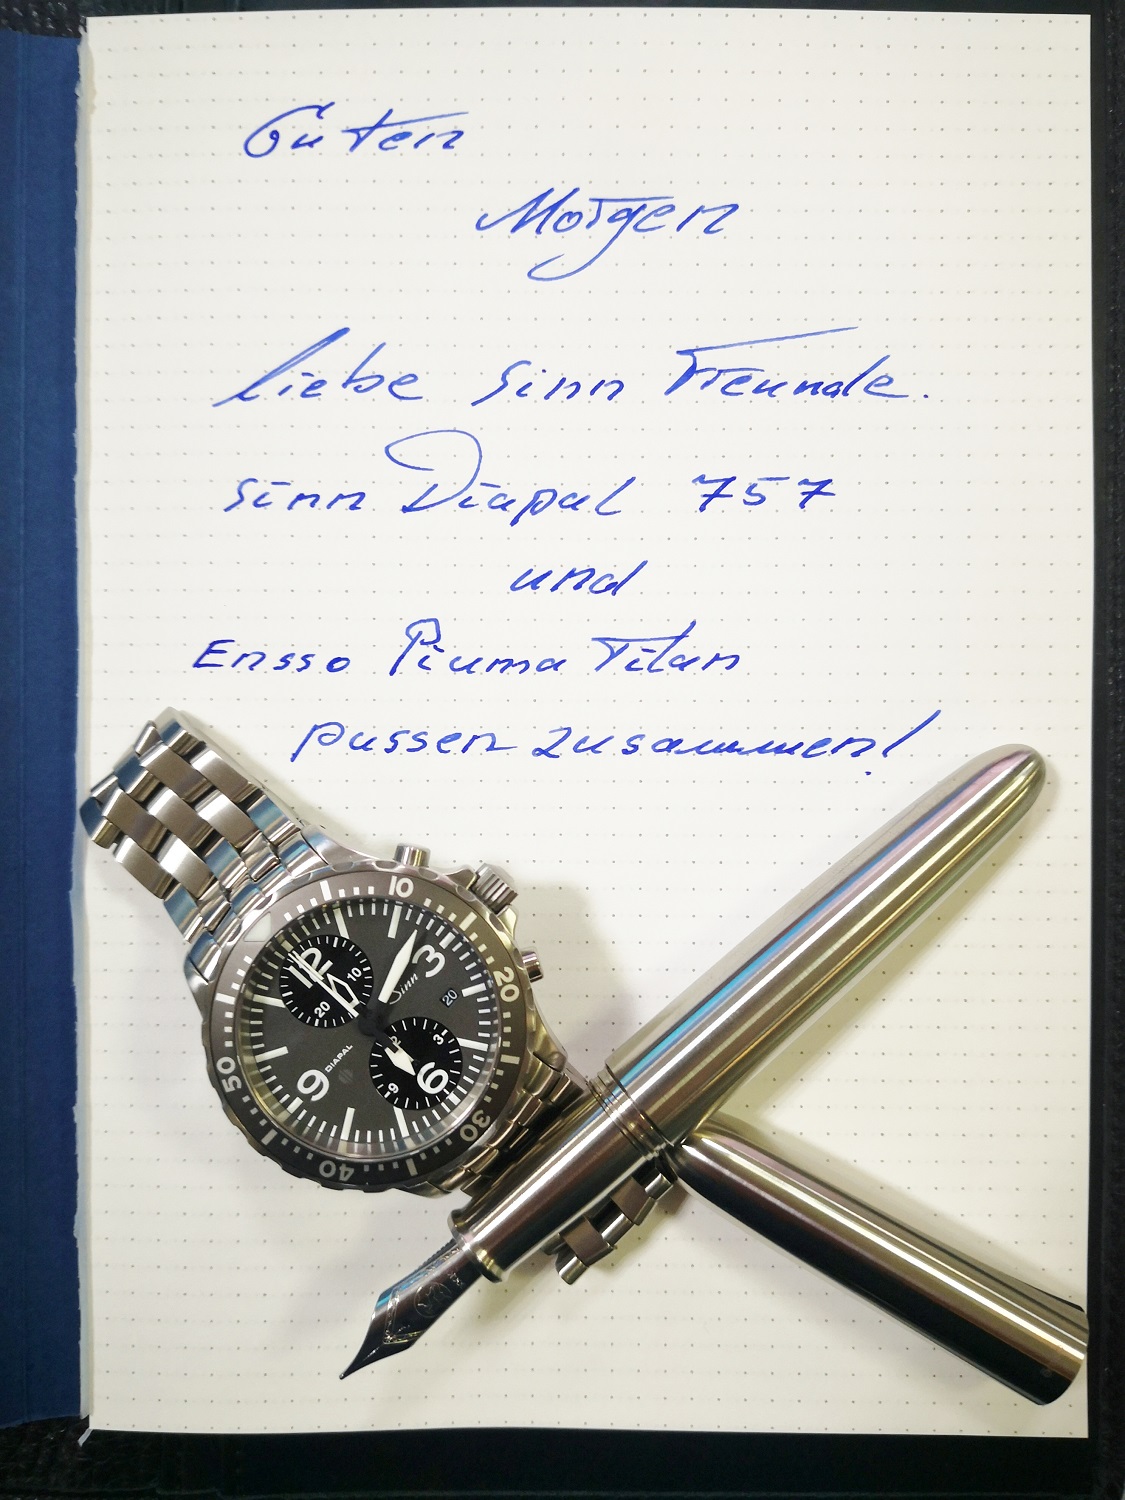 Guten
Morgen
liebe Sinn Freunde.
Sinn Diapal 757
und
Ensso Piuma Titan
passen zusammen!
10
20
30
40
50
12
3
6
9
10
20
3
9
12
Sinn
20
DIAPAL